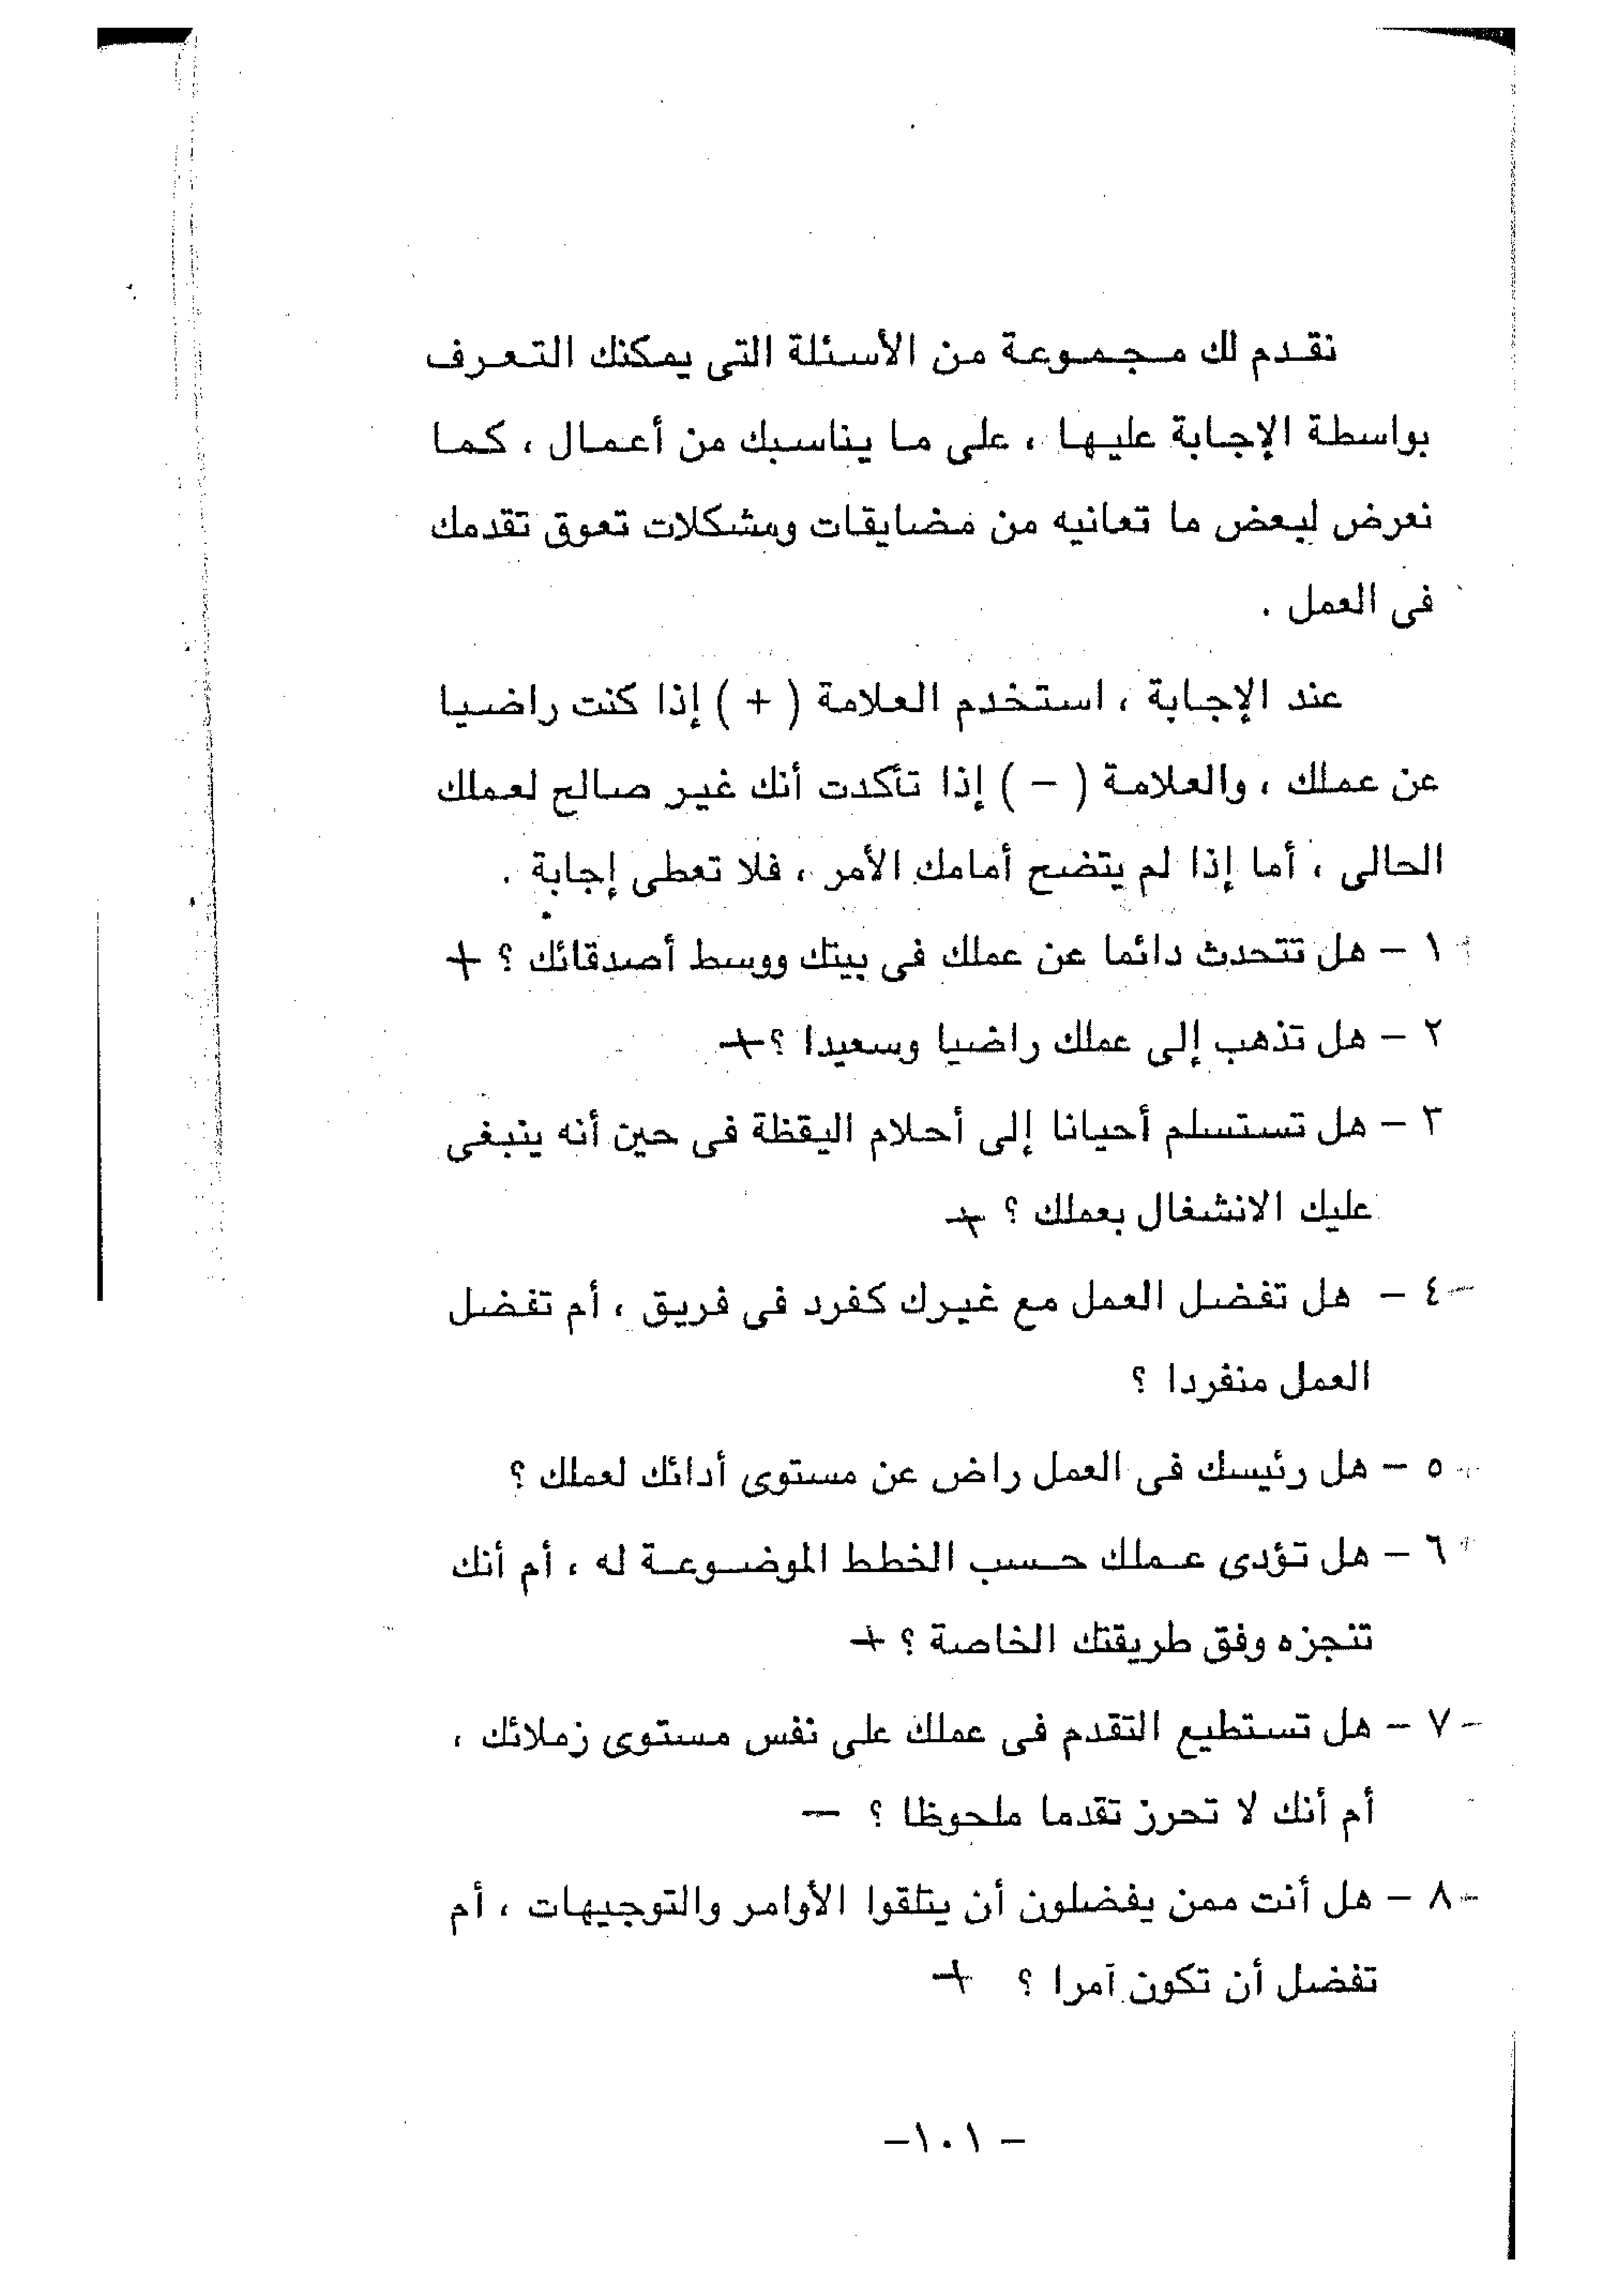 نقدم لك مجموعة من الأسئلة التى يمكنك التعرف
بواسطة الإجابة عليها ، على ما يناسبك من أعمال ، كما
نعرض لبعض ما تعانيه من مضايقات ومشكلات تعوق تقدمك
فى العمل .
عند الإجابة ، استخدم العلامة ( + ) إذا كنت راضيا
عن عملك ، والعلامة ( – ) إذا تأكدت أنك غير صالح لعملك
الحالى ، أما إذا لم يتضح أمامك الأمر ، فلا تعطى إجابة .
١ – هل تتحدث دائما عن عملك فى بيتك ووسط أصدقائك ؟ +
٢ – هل تذهب إلى عملك راضيا وسعيدا ؟ +
٣ – هل تستسلم أحيانا إلى أحلام اليقظة فى حين أنه ينبغى
عليك الانشغال بعملك ؟ +
٤ – هل تفضل العمل مع غيرك كفرد فى فريق ، أم تفضل
العمل منفردا ؟
٥ – هل رئيسك فى العمل راض عن مستوى أدائك لعملك ؟
٦ – هل تؤدى عملك حسب الخطط الموضوعة له ، أم أنك
تنجزه وفق طريقتك الخاصة ؟ +
٧ – هل تستطيع التقدم فى عملك على نفس مستوى زملائك ،
أم أنك لا تحرز تقدما ملحوظا ؟ –
٨ – هل أنت ممن يفضلون أن يتلقوا الأوامر والتوجيهات ، أم
تفضل أن تكون آمرا ؟ +
– ١٠١–